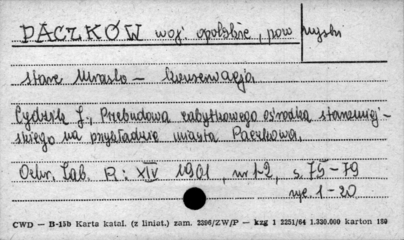 PACZKÓW woj. opolskie, pow. nyski
Stare Miasto – konserwacja
Cydzik J., Przebudowa zabytkowego ośrodka staromiej-
skiego na przykładzie miasta Paczkowa.
Ochr. Zab. R: XIV 1961, nr 1-2, s. 75-79
ryc. 1-20
CWD — B-15b Karta katal. (z liniat.) zam. 2206/ZW/P — kzg 1 2251/64 1.320.000 karton 180